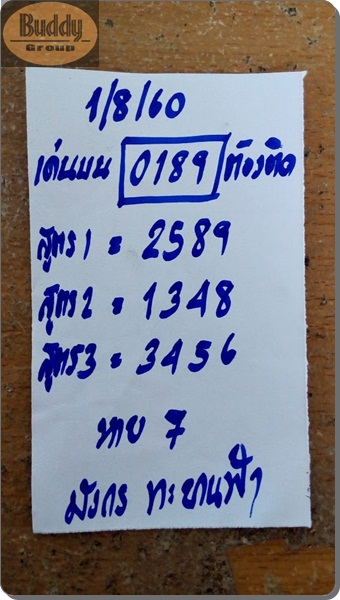 Buddy
Group
1/8/60
เด่นบน 0189 ต้องติด
สูตร 1 = 2589
สูตร 2 = 1348
สูตร 3 = 3456
หาย 7
มังกร ทะยานฟ้า